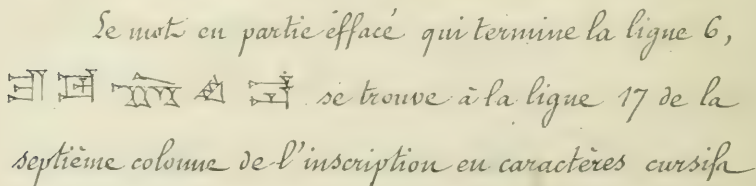 Le mot en partie éffacé qui termine la ligne 6,
se trouve à la ligne 17 de la
septième colonne de l'inscription en caractères cursifs